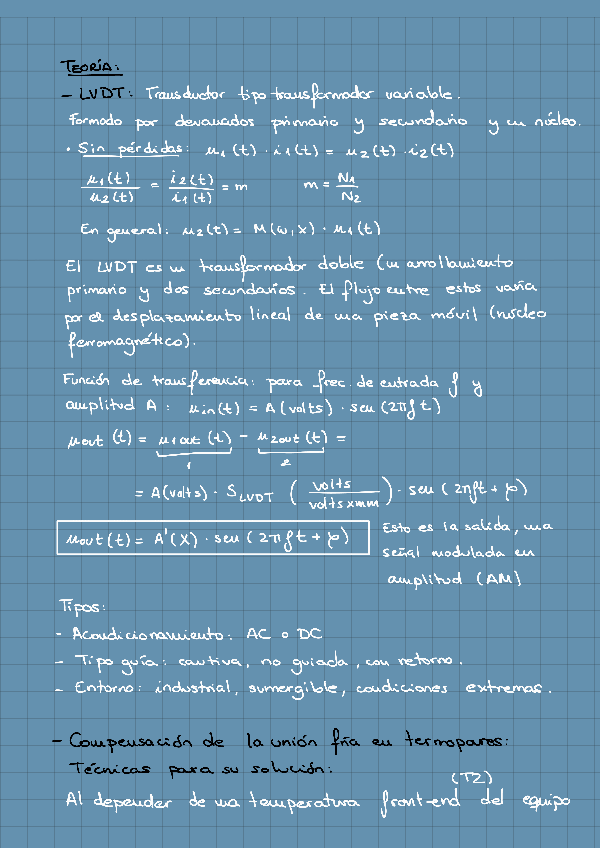 TEORÍA:
- LVDT: Transductor tipo transformador variable.
Formado por devanados primario y secundario y un núcleo.
• Sin pérdidas: u1(t) · i1(t) = u2(t) · i2(t)
u1(t)/u2(t) = i2(t)/i1(t) = m m = N1/N2
En general: u2(t) = M(ω,x) · u1(t)
El LVDT es un transformador doble (un arrollamiento
primario y dos secundarios. El flujo entre estos varía
por el desplazamiento lineal de una pieza móvil (núcleo
ferromagnético).
Función de transferencia: para frec. de entrada f y
amplitud A: uin(t) = A(volts) · sen(2πft)
uout (t) = u1out (t) - u2out (t) =
1 2
= A(volts) · SLVDT (volts/volts×mm) · sen (2πft + φ)
uout(t) = A'(X) · sen (2πft + φ) Esto es la salida, una
señal modulada en
amplitud (AM)
Tipos:
- Acondicionamiento: AC o DC
- Tipo guía: cautiva, no guiada, con retorno.
- Entorno: industrial, sumergible, condiciones extremas.
- Compensación de la unión fría en termopares:
Técnicas para su solución:
(T2)
Al depender de una temperatura front-end del equipo